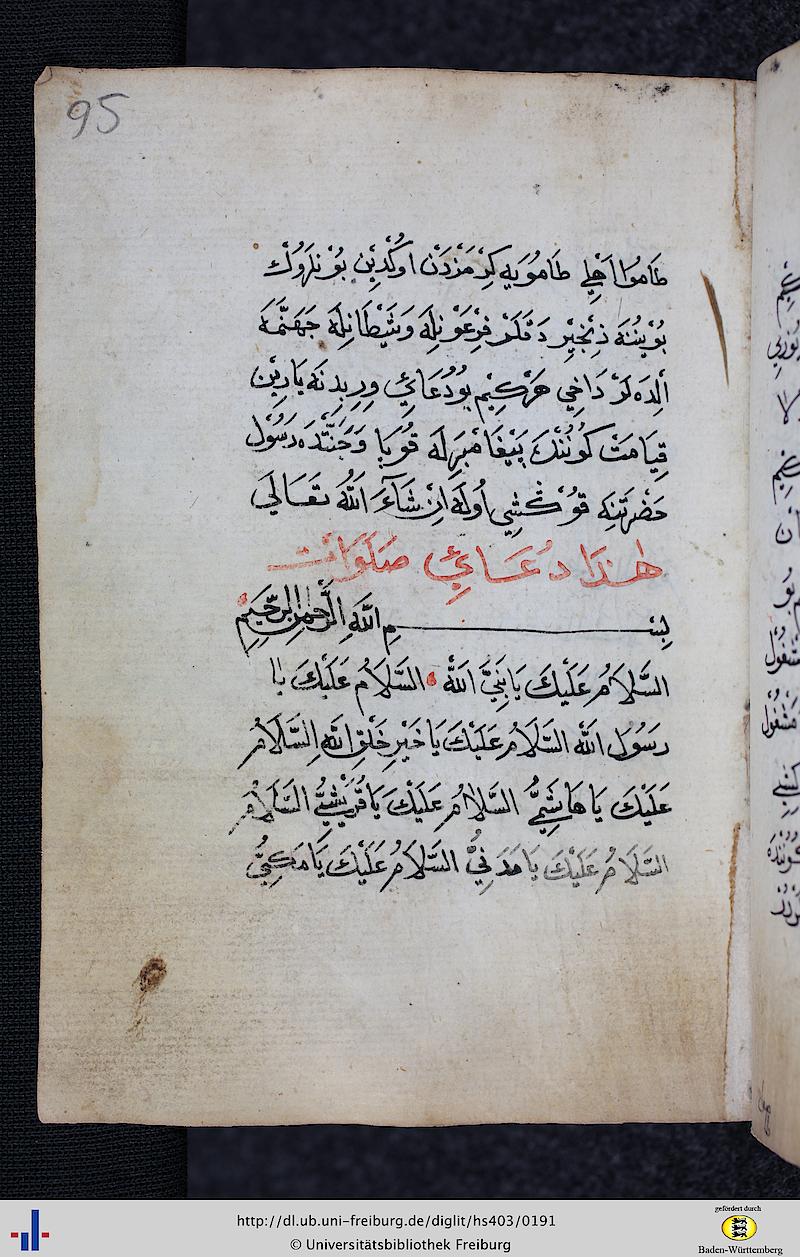 95
طَامُوا اَچِلِي طَامُويَه كِرْمَزْدَنْ اوُكْدِيْن بُوْ نَلَرُوكْ
بُوْيْنُنَه زِنْجِيْر دَقَلَرْ فِرْعَوْنِلَه وَشَيْطَانِلَه جَهَنَّمَه
اِلْدَه لَرْ دَاخِي هَرْكِيْم بُودُعَايِئ وِرِدِدِنَه يَارِيْن
قِيَامَتْ كُونُنْدَه پَيْغَامْبَرِلَه قُوپَا وَجَنَّتْدَه رَسُوْل
حَضْرَتِنِه قُوْكْشِي اُولَه اِنْ شَآءَ اللّٰهُ تَعَالَي
هٰذَا دُعَائِي صَلَوَاتْ
بِسْمِ اللّٰهِ الرَّحْمٰنِ الرَّحِيْمِ
السَّلَامُ عَلَيْكَ يَا نَبِيَّ اللّٰه السَّلَامُ عَلَيْكَ يَا
رَسُوْلَ اللّٰه السَّلَامُ عَلَيْكَ يَا خَيْرِ خَلْقِ اللّٰهِ السَّلَامُ
عَلَيْكَ يَا هَاشِمِيُّ السَّلَامُ عَلَيْكَ يَا قُرَيْشِيُّ السَّلَامُ
السَّلَامُ عَلَيْكَ يَا مَدَنِيُّ السَّلَامُ عَلَيْكَ يَا مَكِيُّ
http://dl.ub.uni-freiburg.de/diglit/hs403/0191
© Universitätsbibliothek Freiburg
gefördert durch
Baden-Württemberg